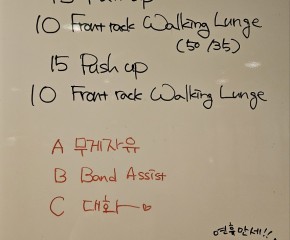 15 Push up
10 Front rack Walking Lunge
(50/35)
15 Push up
10 Front rack Walking Lunge
A 무게자유
B Band Assist
C 대화~♡
연휴만세!!